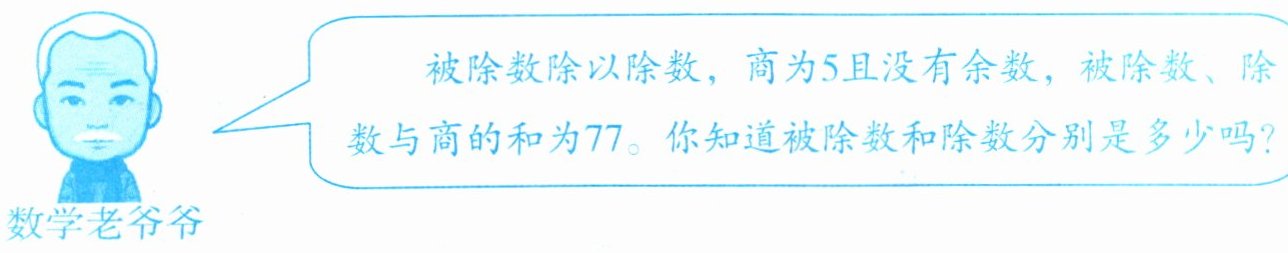 被除数除以除数，商为5且没有余数，被除数、除
数与商的和为77。你知道被除数和除数分别是多少吗？
数学老爷爷